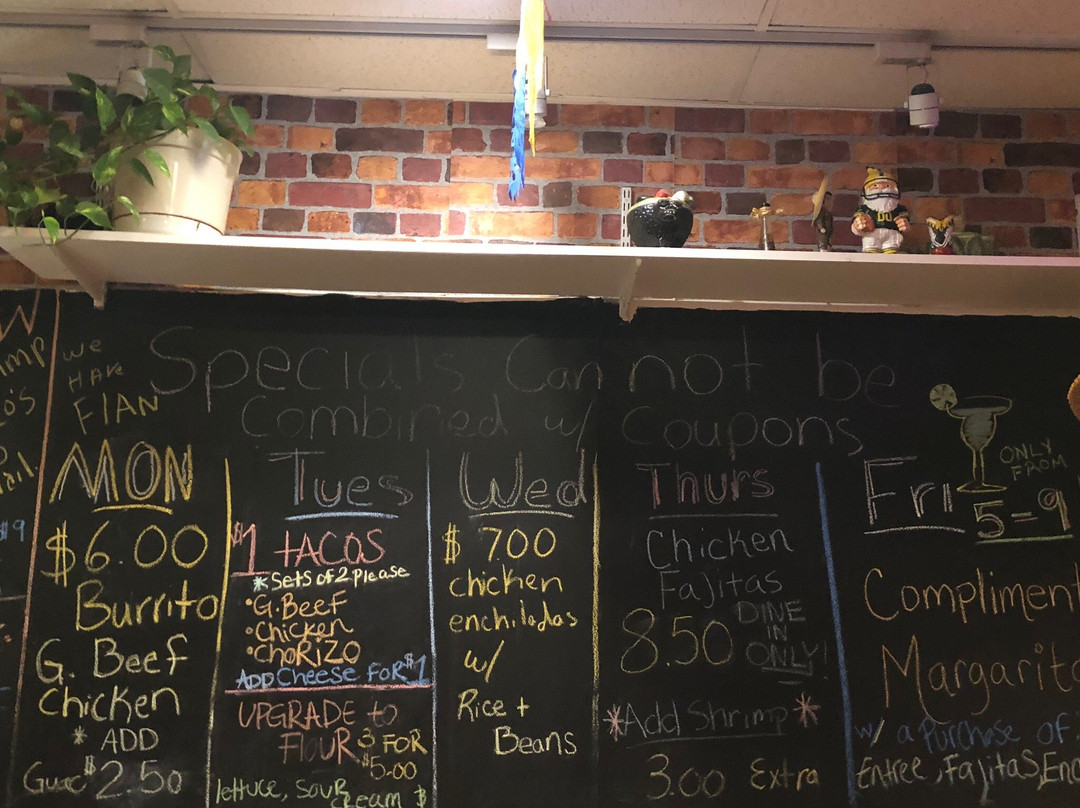 we
HAVE
FLAN
Specials Can not be
Combined w/ Coupons
MON
$6.00
Burrito
G. Beef
Chicken
* ADD
Guac $2.50
Tues
$1 tACOS
*Sets of 2 Please
•G.Beef
•Chicken
•CHORIZO
ADD Cheese FOR $1
UPGRADE to
FLOUR 3 FOR
$5.00
lettuce, SOUR
CReam $
Wed
$ 7.00
chicken
enchiladas
w/
Rice +
Beans
Thurs
Chicken
Fajitas
8.50 DINE
IN
ONLY!
*Add Shrimp*
3.00 Extra
Fri
ONLY
FROM
5-9
Compliment
Margarita
w/ a Purchase of
Entree, Fajitas,
OU